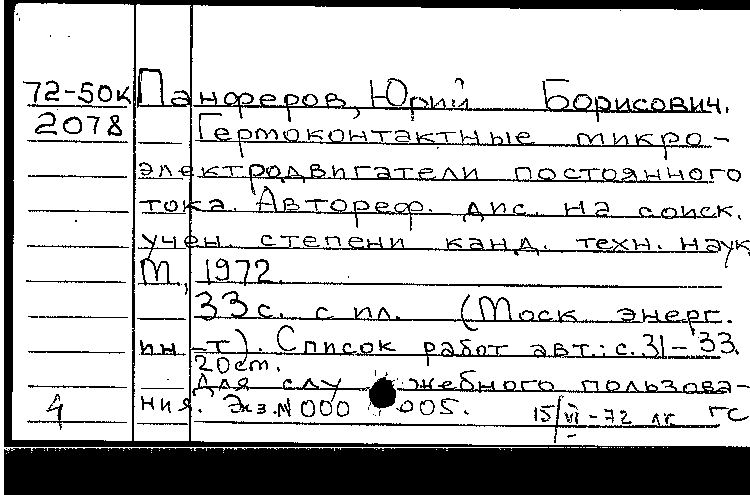 72-50к Панферов, Юрий Борисович.
2078 Гермоконтактные микро-
электродвигатели постоянного
тока. Автореф. дис. на соиск.
учен. степени канд. техн. наук
М., 1972.
33 с. с ил. (Моск энерг.
ин-т). Список работ авт.: с. 31-33.
20см.
Для служебного пользова-
4 ния. Экз. N 000 005. 15/VI-72 гс